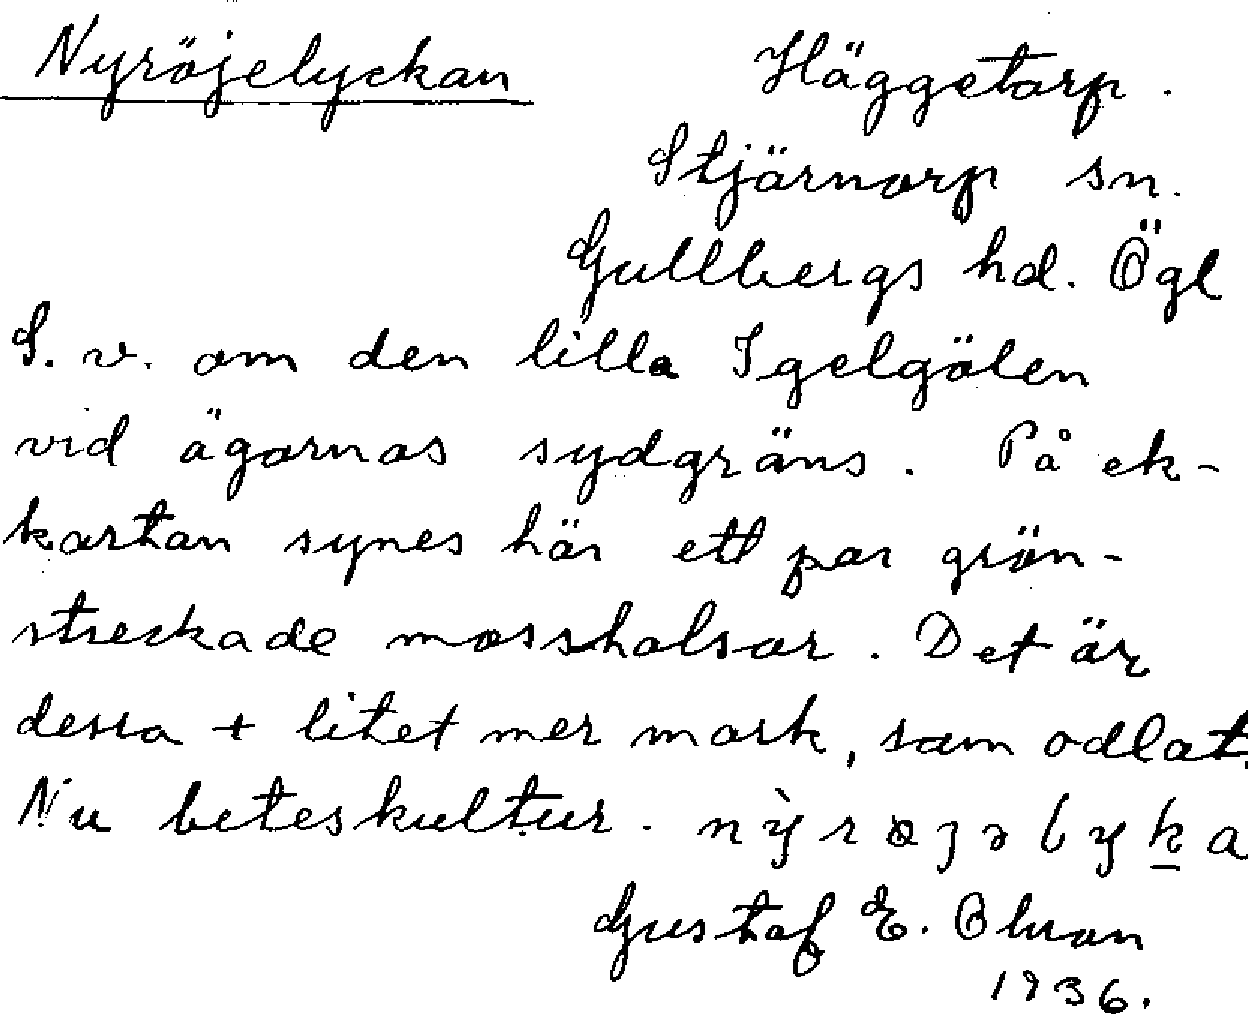 Nyröjelyckan Häggetorp.
Stjärnorp sn.
Gullbergs hd. Ögl
S. v. om den lilla Igelgölen
vid ägornas sydgräns. På ek-
kartan synes här ett par grön-
streckade mosshalsar. Det är
dessa + litet mer mark, som odlat.
Nu beteskultur.
Gustaf E. Olsson
1936.